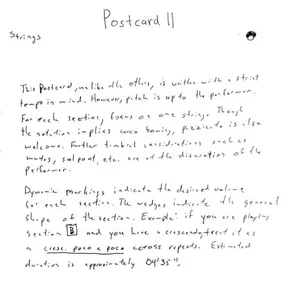 Postcard II
Strings
This Postcard, unlike the others, is written with a strict
tempo in mind. However, pitch is up to the performer.
For each section, focus on one string. Though
the notation implies arco bowing, pizzicato is also
welcome. Further timbral considerations such as
mutes, sul pont, etc. are at the discretion of the
performer.
Dynamic markings indicate the desired volume
for each section. The wedges indicate the general
shape of the section. Example: if you are playing
Section B and you have a crescendo, treat it as
a cresc. poco a poco across repeats. Estimated
duration is approximately 04'35".